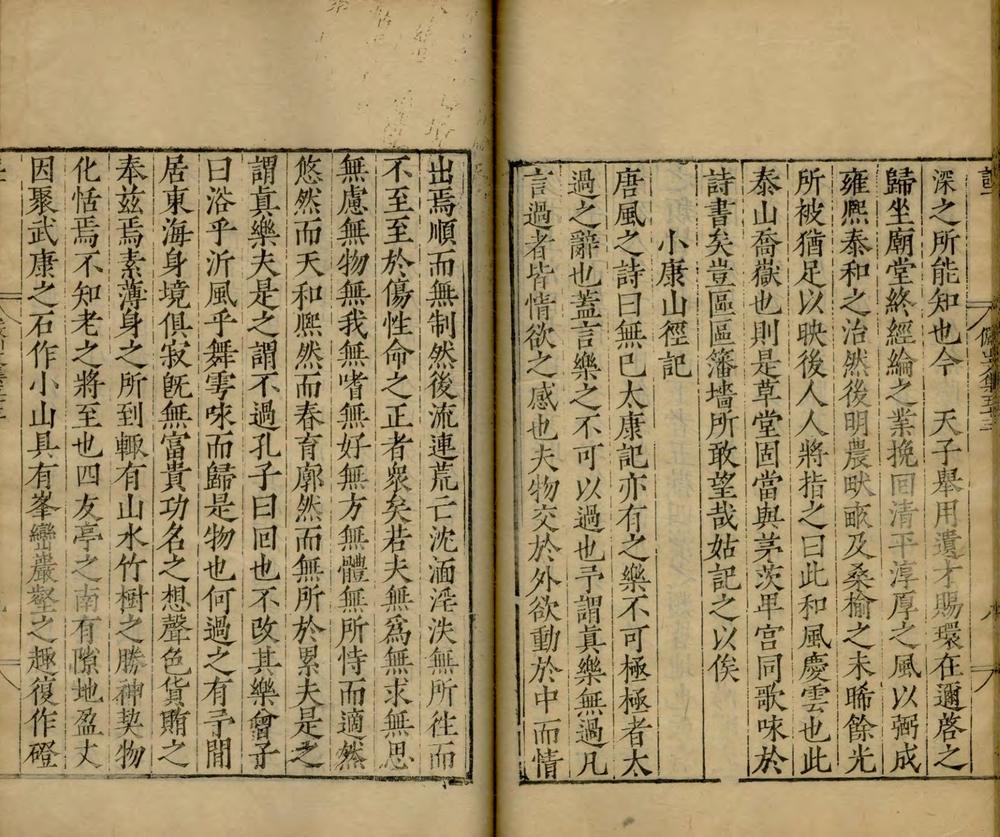 深之所能知也今　天子舉用遺才賜環在邇啓之
歸坐廟堂終經綸之業挽回清平淳厚之風以弼成
雍熙泰和之治然後明農畎畝及桑榆之未晞餘光
所被猶足以映後人人將指之曰此和風慶雲也此
泰山喬嶽也則是草堂固當與茅茨卑宫同歌咏於
詩書矣豈區區籓墻所敢望哉姑記之以俟
小康山徑記
唐風之詩曰無已太康記亦有之樂不可極極者太
過之辭也蓋言樂之不可以過也予謂真樂無過凡
言過者皆情欲之感也夫物交於外欲動於中而情
出焉順而無制然後流連荒亡沈湎淫泆無所徃而
不至至於傷性命之正者衆矣若夫無爲無求無思
無慮無物無我無嗜無好無方無體無所恃而適然
悠然而天和熈然而春育廓然而無所於累夫是之
謂真樂夫是之謂不過孔子曰回也不改其樂會子
曰浴乎沂風乎舞雩咏而歸是物也何過之有予閒
居東海身境俱寂旣無富貴功名之想聲色貨賄之
奉兹焉素薄身之所到輙有山水竹樹之勝神契物
化恬焉不知老之將至也四友亭之南有隙地盈丈
因聚武康之石作小山具有峯巒巖壑之趣復作磴